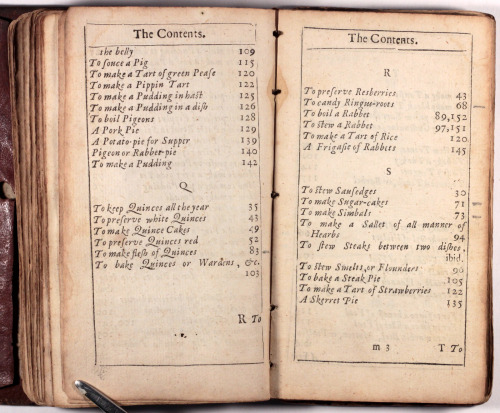 The Contents.
the belly 109
To souce a Pig 115
To make a Tart of green Pease 120
To make a Pippin Tart 122
To make a Pudding in hast 125
To make a Pudding in a dish 126
To boil Pigeons 128
A Pork Pie 129
A Potato-pie for Supper 139
Pigeon or Rabbet-pie 140
To make a Pudding 142
Q
To keep Quinces all the year 35
To preserve white Quinces 43
To make Quince Cakes 49
To preserve Quinces red 52
To make flesh of Quinces 83
To bake Quinces or Wardens, &c.
103
R To
The Contents.
R
To preserve Resberries 43
To candy Ringus-roots 68
To boil a Rabbet 89,152
To stew a Rabbet 97,151
To make a Tart of Rice 120
A Frigasie of Rabbets 145
S
To stew Sausedges 30
To make Sugar-cakes 71
To make Simbals 73
To make a Sallet of all manner of
Hearbs 94
To stew Steaks between two dishes.
ibid.
To stew Smelts or Flounders 96
To bake a Steak Pie 105
To make a Tart of Strawberries 122
A Skerret Pie 135
m 3
T To